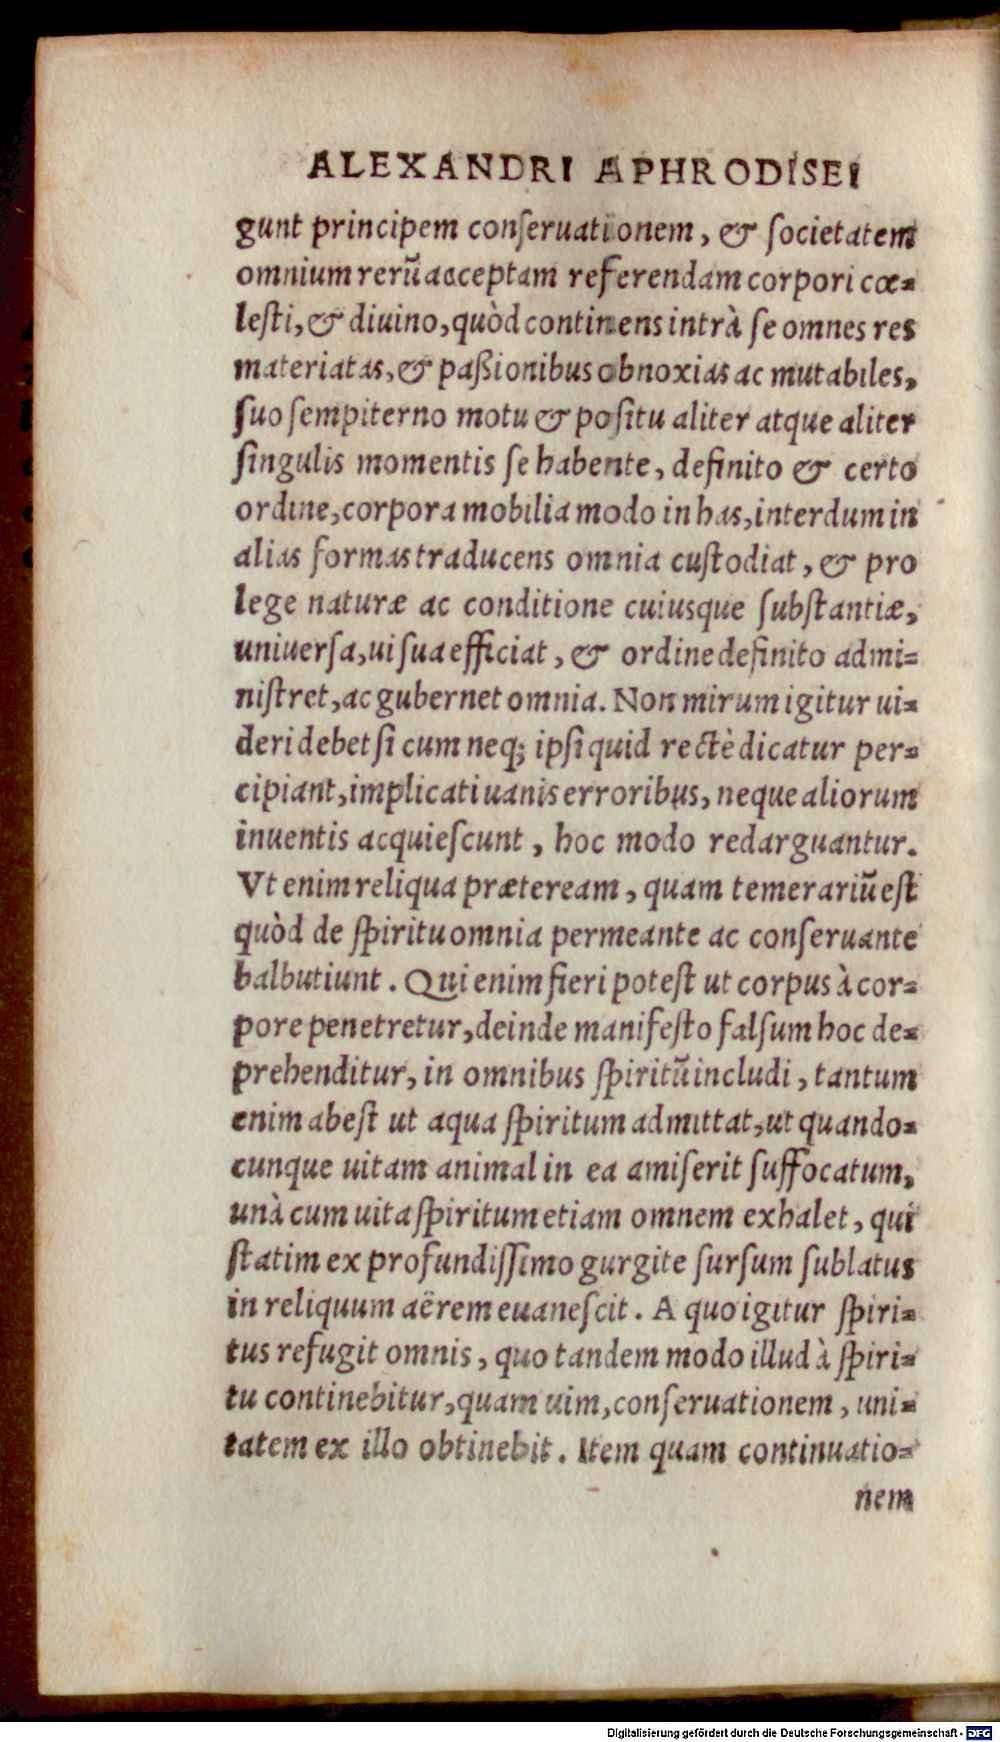 ALEXANDRI APHRODISEI
gunt principem conſeruationem, & ſocietatem
omnium rerū acceptam referendam corpori cœ-
leſti, & diuino, quòd continens intrà ſe omnes res
materiatas, & paßionibus obnoxias ac mutabiles,
ſuo ſempiterno motu & poſitu aliter atque aliter
ſingulis momentis ſe habente, definito & certo
ordine, corpora mobilia modo in has, interdum in
alias formas traducens omnia cuſtodiat, & pro
lege naturæ ac conditione cuiusque ſubſtantiæ,
uniuerſa, ui ſua efficiat, & ordine definito admi-
niſtret, ac gubernet omnia. Non mirum igitur ui-
deri debet ſi cum neq; ipſi quid rectè dicatur per-
cipiant, implicati uanis erroribus, neque aliorum
inuentis acquieſcunt, hoc modo redarguantur.
Vt enim reliqua præteream, quam temerariū eſt
quòd de ſpiritu omnia permeante ac conſeruante
balbutiunt. Qui enim fieri poteſt ut corpus à cor-
pore penetretur, deinde manifeſto falſum hoc de-
prehenditur, in omnibus ſpiritū includi, tantum
enim abeſt ut aqua ſpiritum admittat, ut quando-
cunque uitam animal in ea amiſerit ſuffocatum,
unà cum uita ſpiritum etiam omnem exhalet, qui
ſtatim ex profundiſſimo gurgite ſurſum ſublatus
in reliquum aërem euaneſcit. A quo igitur ſpiri-
tus refugit omnis, quo tandem modo illud à ſpiri-
tu continebitur, quam uim, conſeruationem, uni-
tatem ex illo obtinebit. Item quam continuatio-
nem
Digitalisierung gefördert durch die Deutsche Forschungsgemeinschaft - DFG